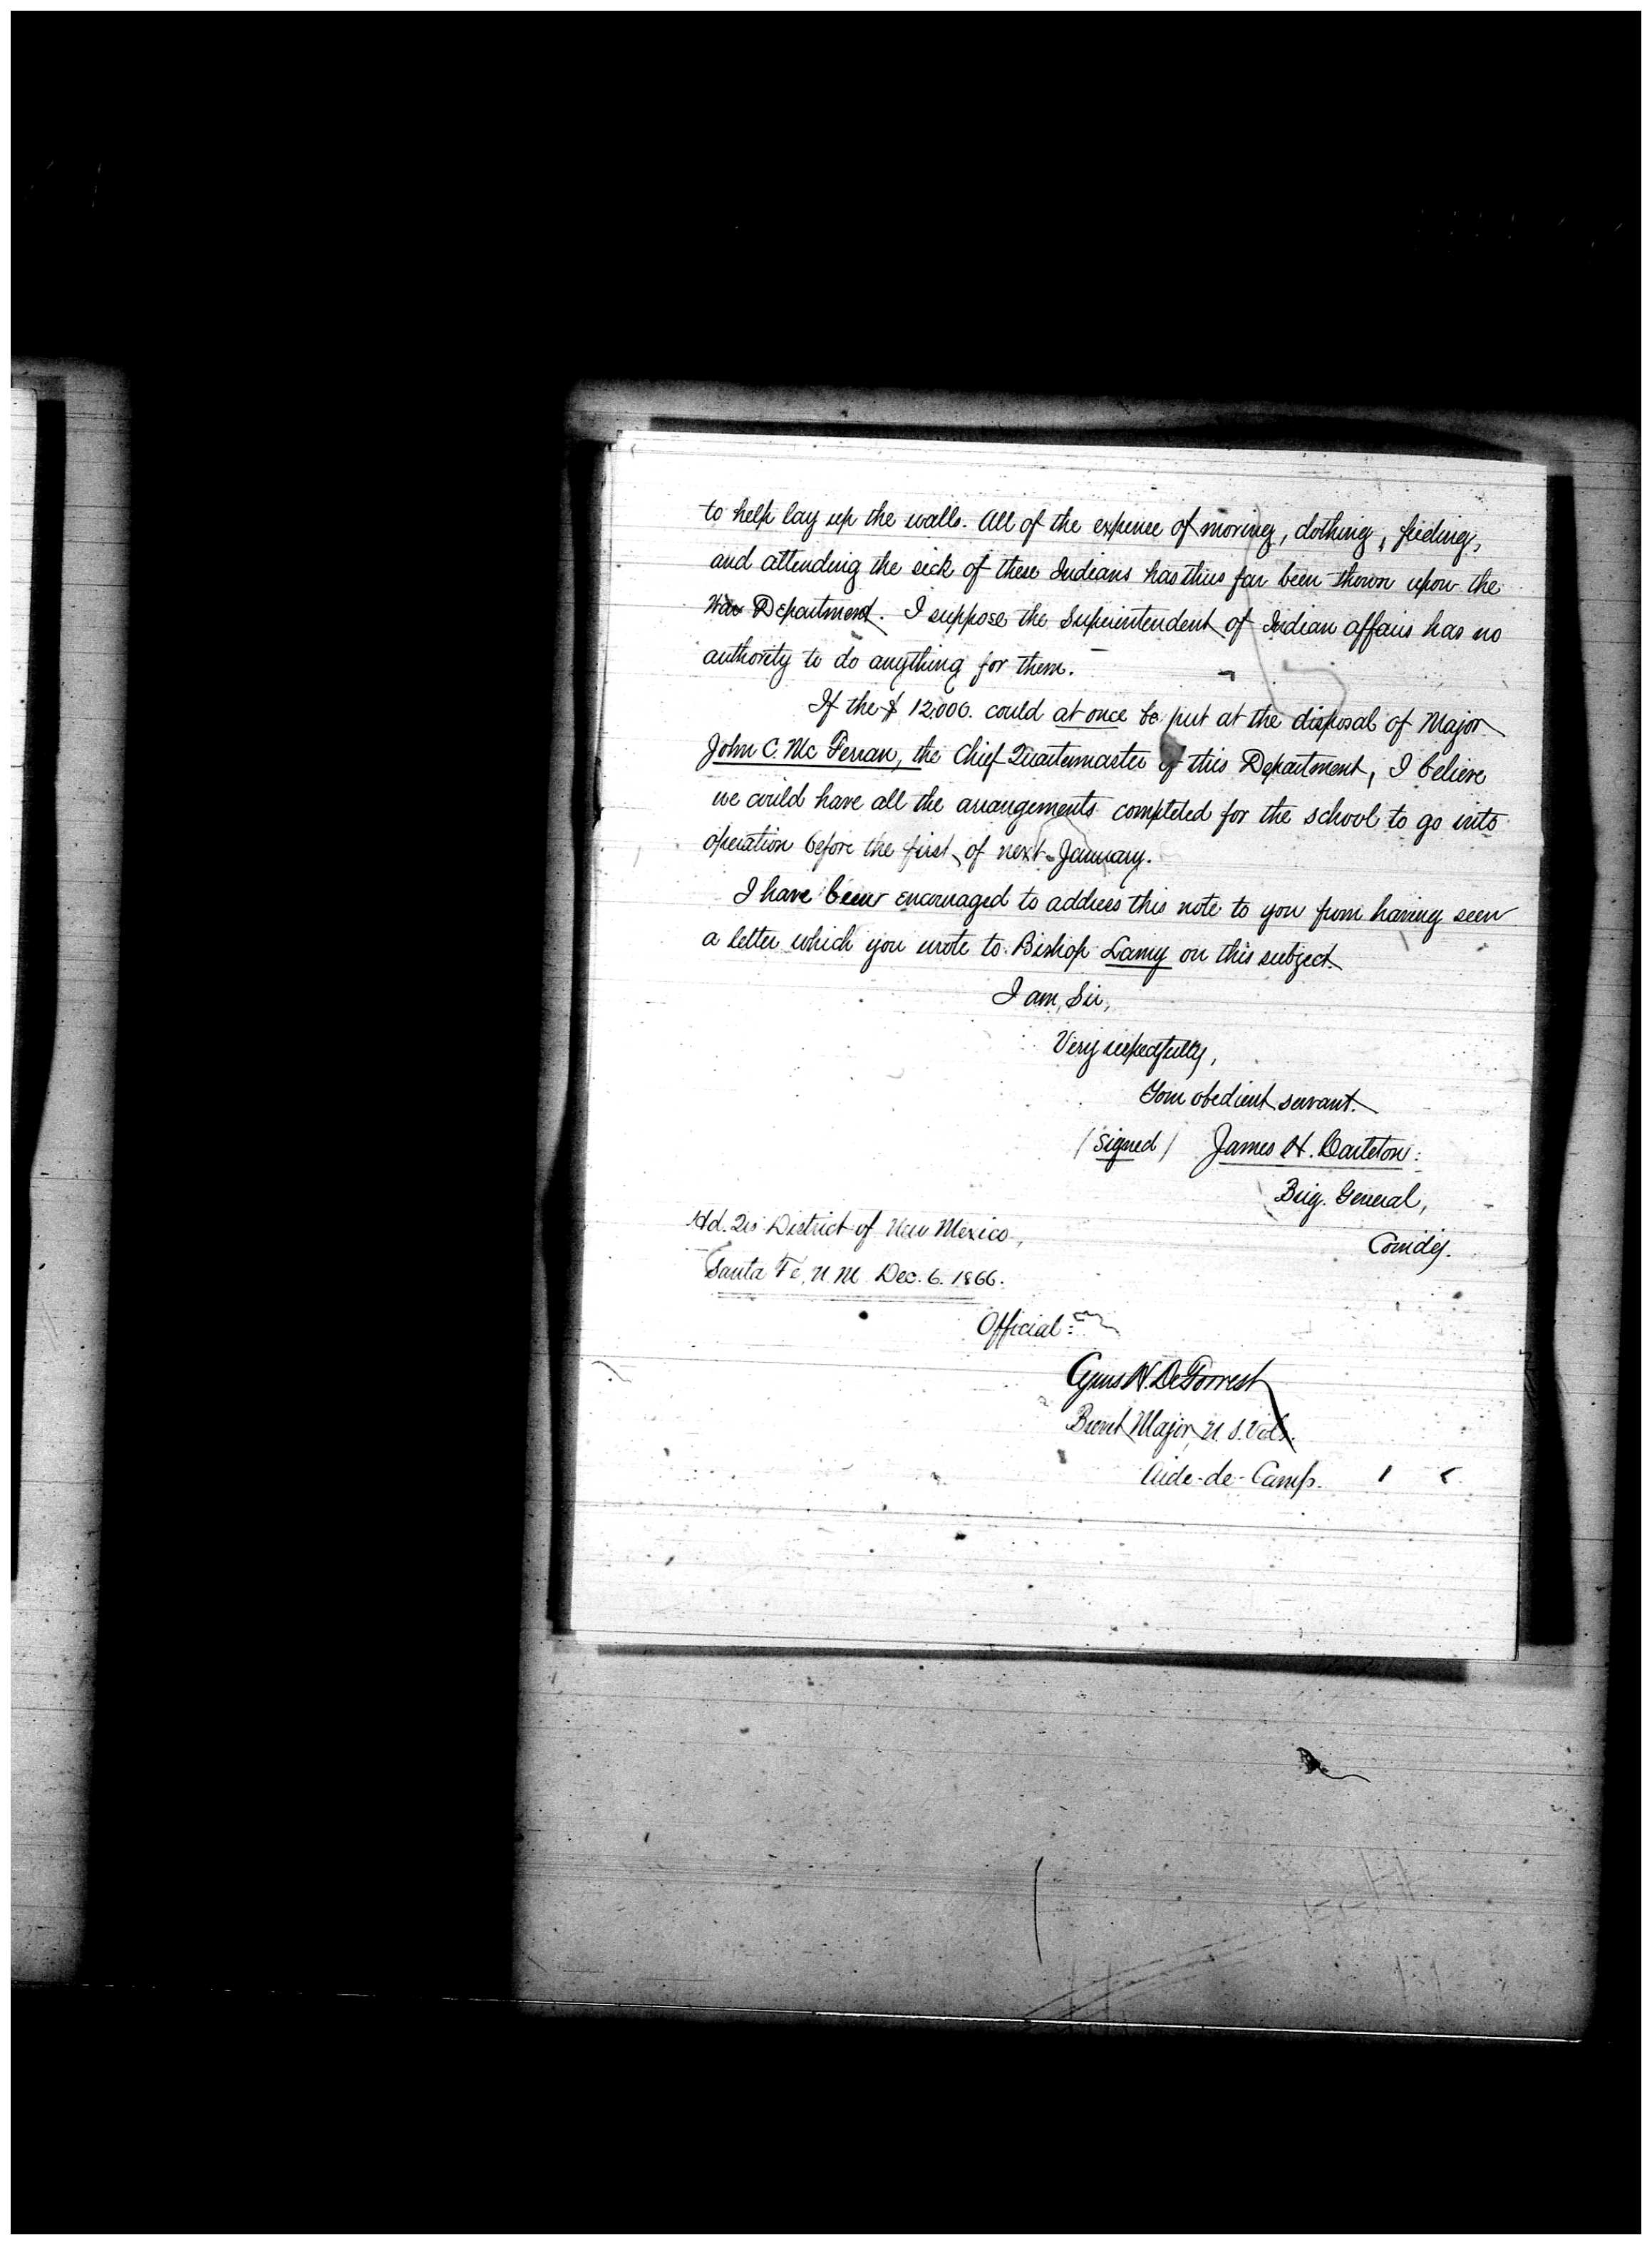 to help lay up the walls. All of the expense of moving, clothing, feeding,
and attending the sick of these Indians has thus far been thrown upon the
War Department. I suppose the Superintendent of Indian affairs has no
authority to do anything for them.
If the $ 12,000. could at once be put at the disposal of Major
John C. Mc Ferran, the Chief Quartermaster of this Department, I believe
we could have all the arrangements completed for the school to go into
operation before the first of next January.
I have been encouraged to address this note to you from having seen
a letter which you wrote to Bishop Lamy on this subject.
I am, Sir,
Very respectfully,
Your obedient servant.
(signed) James H. Carleton:
Brig. General,
Comdg.
Hd. Qrs District of New Mexico,
Santa Fe, N. M. Dec. 6. 1866.
Official:
Cyrus H. DeForrest
Brevet Major, U. S. Vols.
Aide-de-Camp.